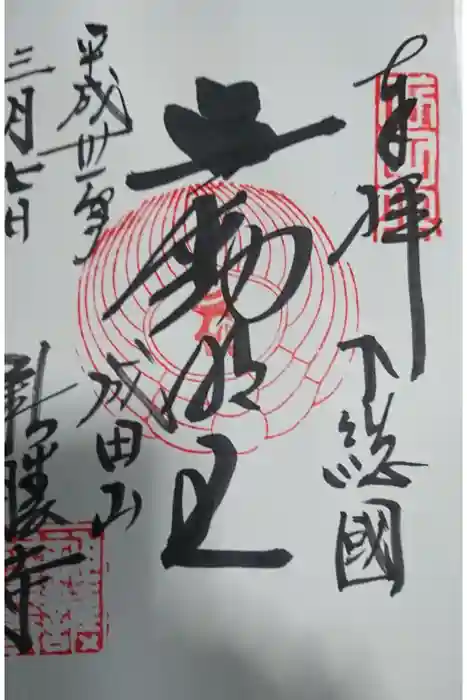 奉拝
下総國
不動明王
平成卅一年
三月七日
成田山
新勝寺